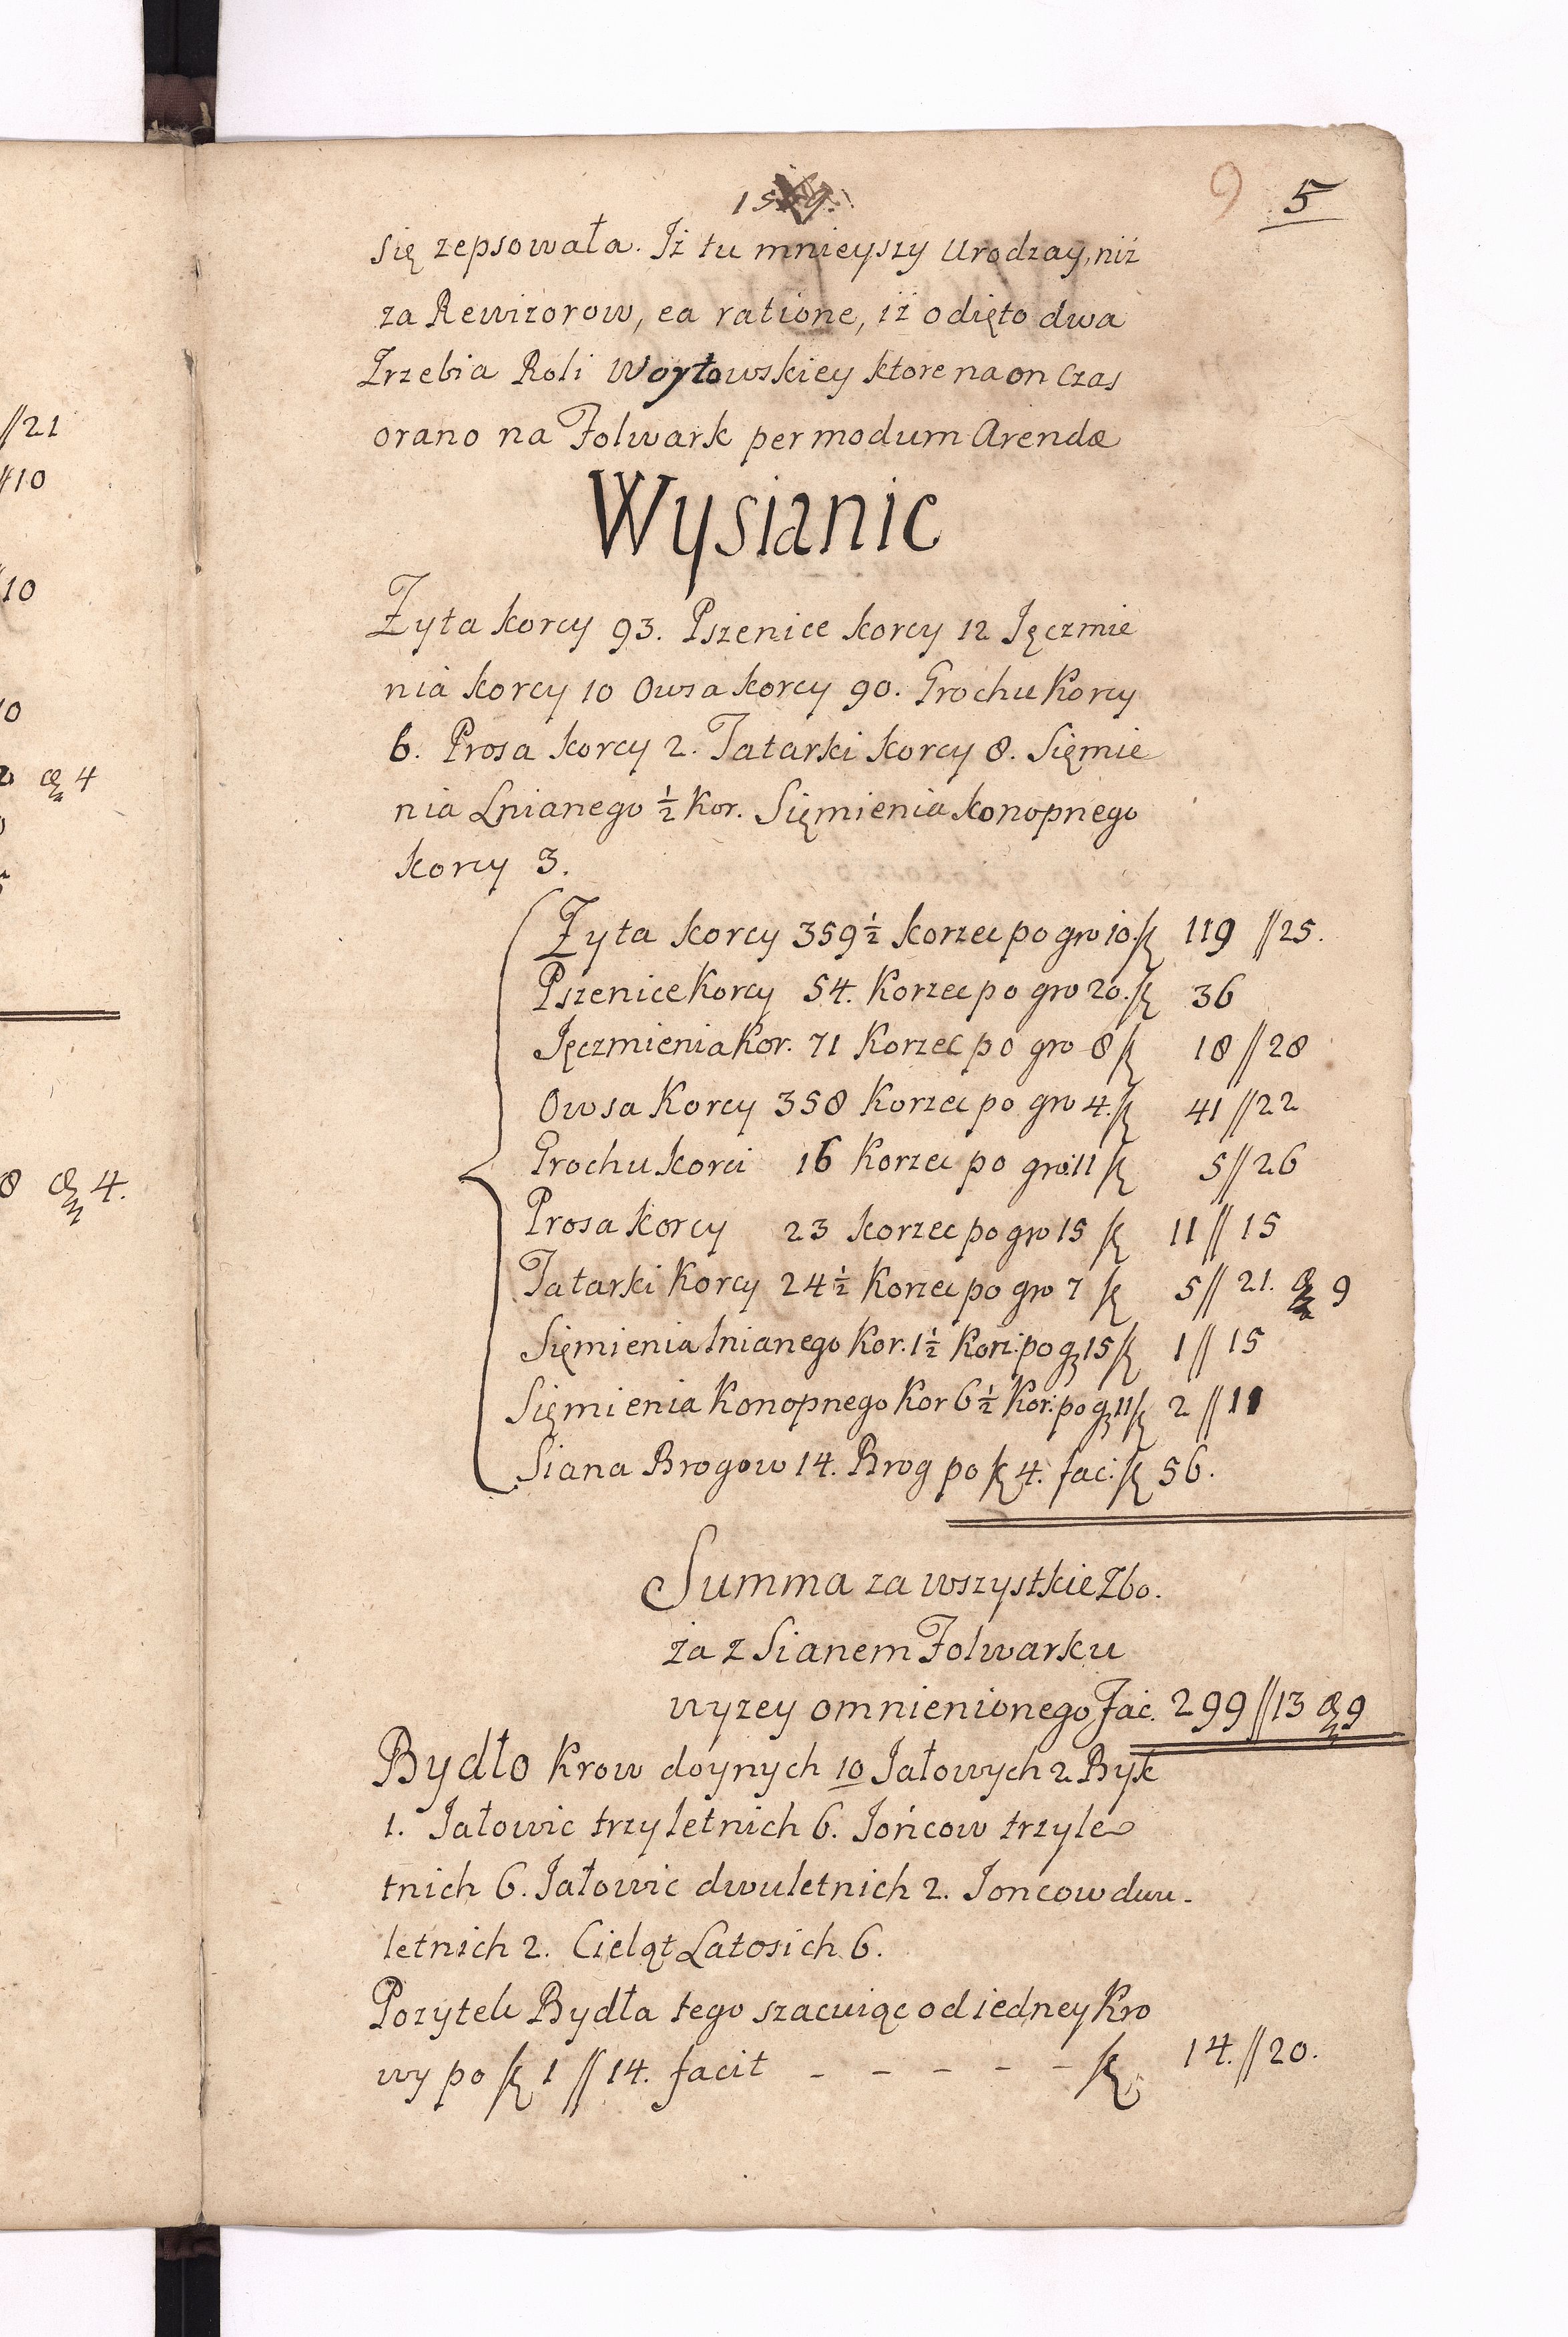 9 5
się zepsowała. Iż tu mnieyszy Urodzay, niż
za Rewizorow, ea ratione, iż odięto dwa
Zrzebia Roli Woytowskiey ktore na on Czas
orano na Folwark per modum Arendæ
Wysianie
Żyta korcy 93. Pszenice korcy 12 Jęczmie
nia korcy 10 Owsa korcy 90. Grochu Korcy
6. Prosa korcy 2. Tatarki korcy 8. Sięmie
nia Lnianego ½ Kor. Sięmienia konopnego
korcy 3.
Żyta korcy 359½ korzec po gro 10. ƒ 119 //25.
Pszenice Korcy 54. Korzec po gro 20. ƒ 36
Jęczmienia Kor. 71 Korzec po gro 8 ƒ 18 //28
Owsa Korcy 358 Korzec po gro 4. ƒ 41 //22
Grochu korci 16 Korzec po gro: 11 ƒ 5 //26
Prosa korcy 23 korzec po gro 15 ƒ 11 // 15
Tatarki Korcy 24½ Korzec po gro 7 ƒ 5 // 21. ₰ 9
Sięmienia lnianego Kor. 1½ Korz: po g 15 ƒ 1 // 15
Sięmienia Konopnego Kor 6½ Kor: po g 11 ƒ 2 // 11
Siana Brogow 14. Brog po ƒ 4. fac: ƒ 56.
Summa za wszystkie Zbo.
ża z Sianem Folwarku
wyzey omnienionego Fac. 299 //13 ₰ 9
Bydło Krow doynych 10 Jałowych 2 Byk
1. Jałowic trzyletnich 6. Jońcow trzyle
tnich 6. Jałowic dwuletnich 2. Joncow dwu-
letnich 2. Cieląt Latosich 6.
Pozytek Bydła tego szacuiąc od iedney Kro
wy po ƒ 1 // 14. facit - - - - - ƒ 14. //20.
//21
//10
10
0
₰ 4
8 ₰ 4.